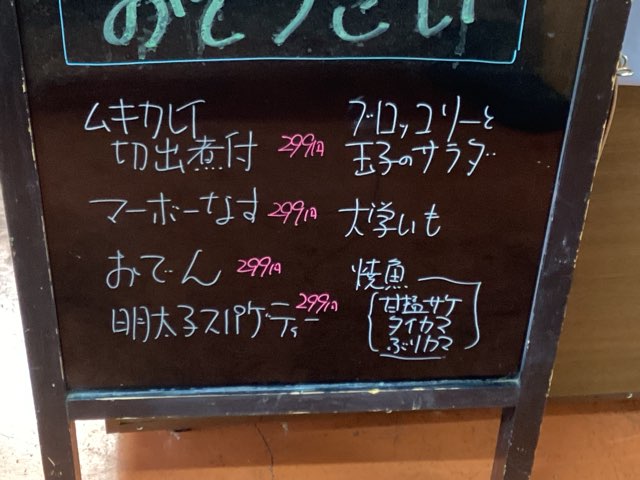 おそうざい
ムキカレイ
切出煮付 299円
マーボーなす 299円
おでん 299円
明太子スパゲティー 299円
ブロッコリーと
玉子のサラダ
大学いも
焼魚
甘塩サケ
タイカマ
ぶりカマ